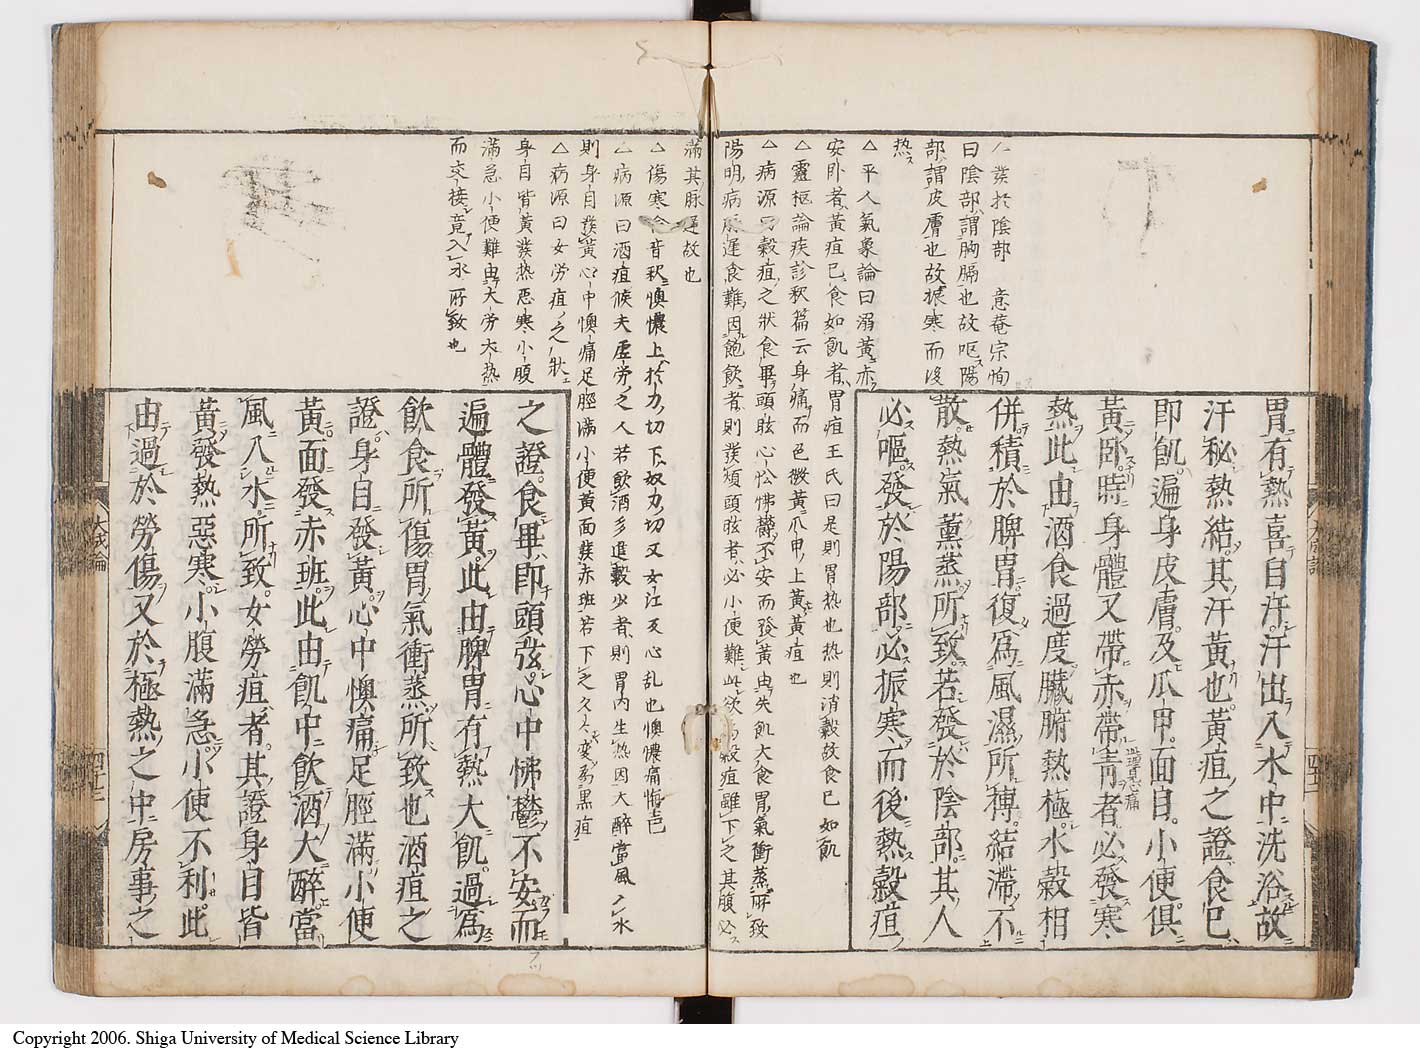 胃有熱喜自汗汗出入水中洗浴故
汗秘熱結其汗黄也黄疸之證食已
即飢遍身皮膚及爪甲面目小便俱
黄臥時身體又帶赤帶青者必發寒
熱此由酒食過度臟腑熱極水穀相
併積於脾胃復爲風濕所搏結滯不
散熱氣薫蒸所致若發於陰部其人
必嘔發於陽部必振寒而後熱穀疸
發於陰部 意菴宗恂
曰陰部謂胸膈也故嘔陽
部謂皮膚也故振寒而後
热
△平人氣象論曰溺黄赤
安卧者黄疸已食如飢者胃疸王氏曰是則胃热也热則消穀故食已如飢
△靈樞論疾診釈篇云身痛而色微黄爪甲上黄黄疸也
△病源曰穀疸之狀食畢頭眩心忪怫鬱不安而發黄由失飢大食胃氣衝蒸所致
陽明病脉遲食難因飽飲者則發煩頭眩者必小便難此欲爲穀疸雖下之其腹必
滿其脉遲故也
△傷寒命音釈懊憹上於刀切下奴刀切又女江反心乱也懊憹痛悔
△病源曰酒疸候夫虚劳之人若飲酒多進穀少者則胃内生热因大醉當風入水
則身自發黄心中懊痛足脛滿小便黄面發赤班若下之久久変為黒疸
△病源曰女劳疸之狀
身自皆黄發热惡寒小腹
滿急小便難由大劳大热
而交接竟入水所致也
之證食畢即頭弦心中怫鬱不安而
遍體發黄此由脾胃有熱大飢過爲
飲食所傷胃氣衝蒸所致也酒疸之
證身自發黄心中懊痛足脛滿小便
黄面發赤班此由飢中飲酒大醉當
風入水所致女勞疸者其證身自皆
黄發熱惡寒小腹滿急小便不利此
由過於勞傷又於極熱之中房事之
大成論
四十二
Copyright 2006. Shiga University of Medical Science Library